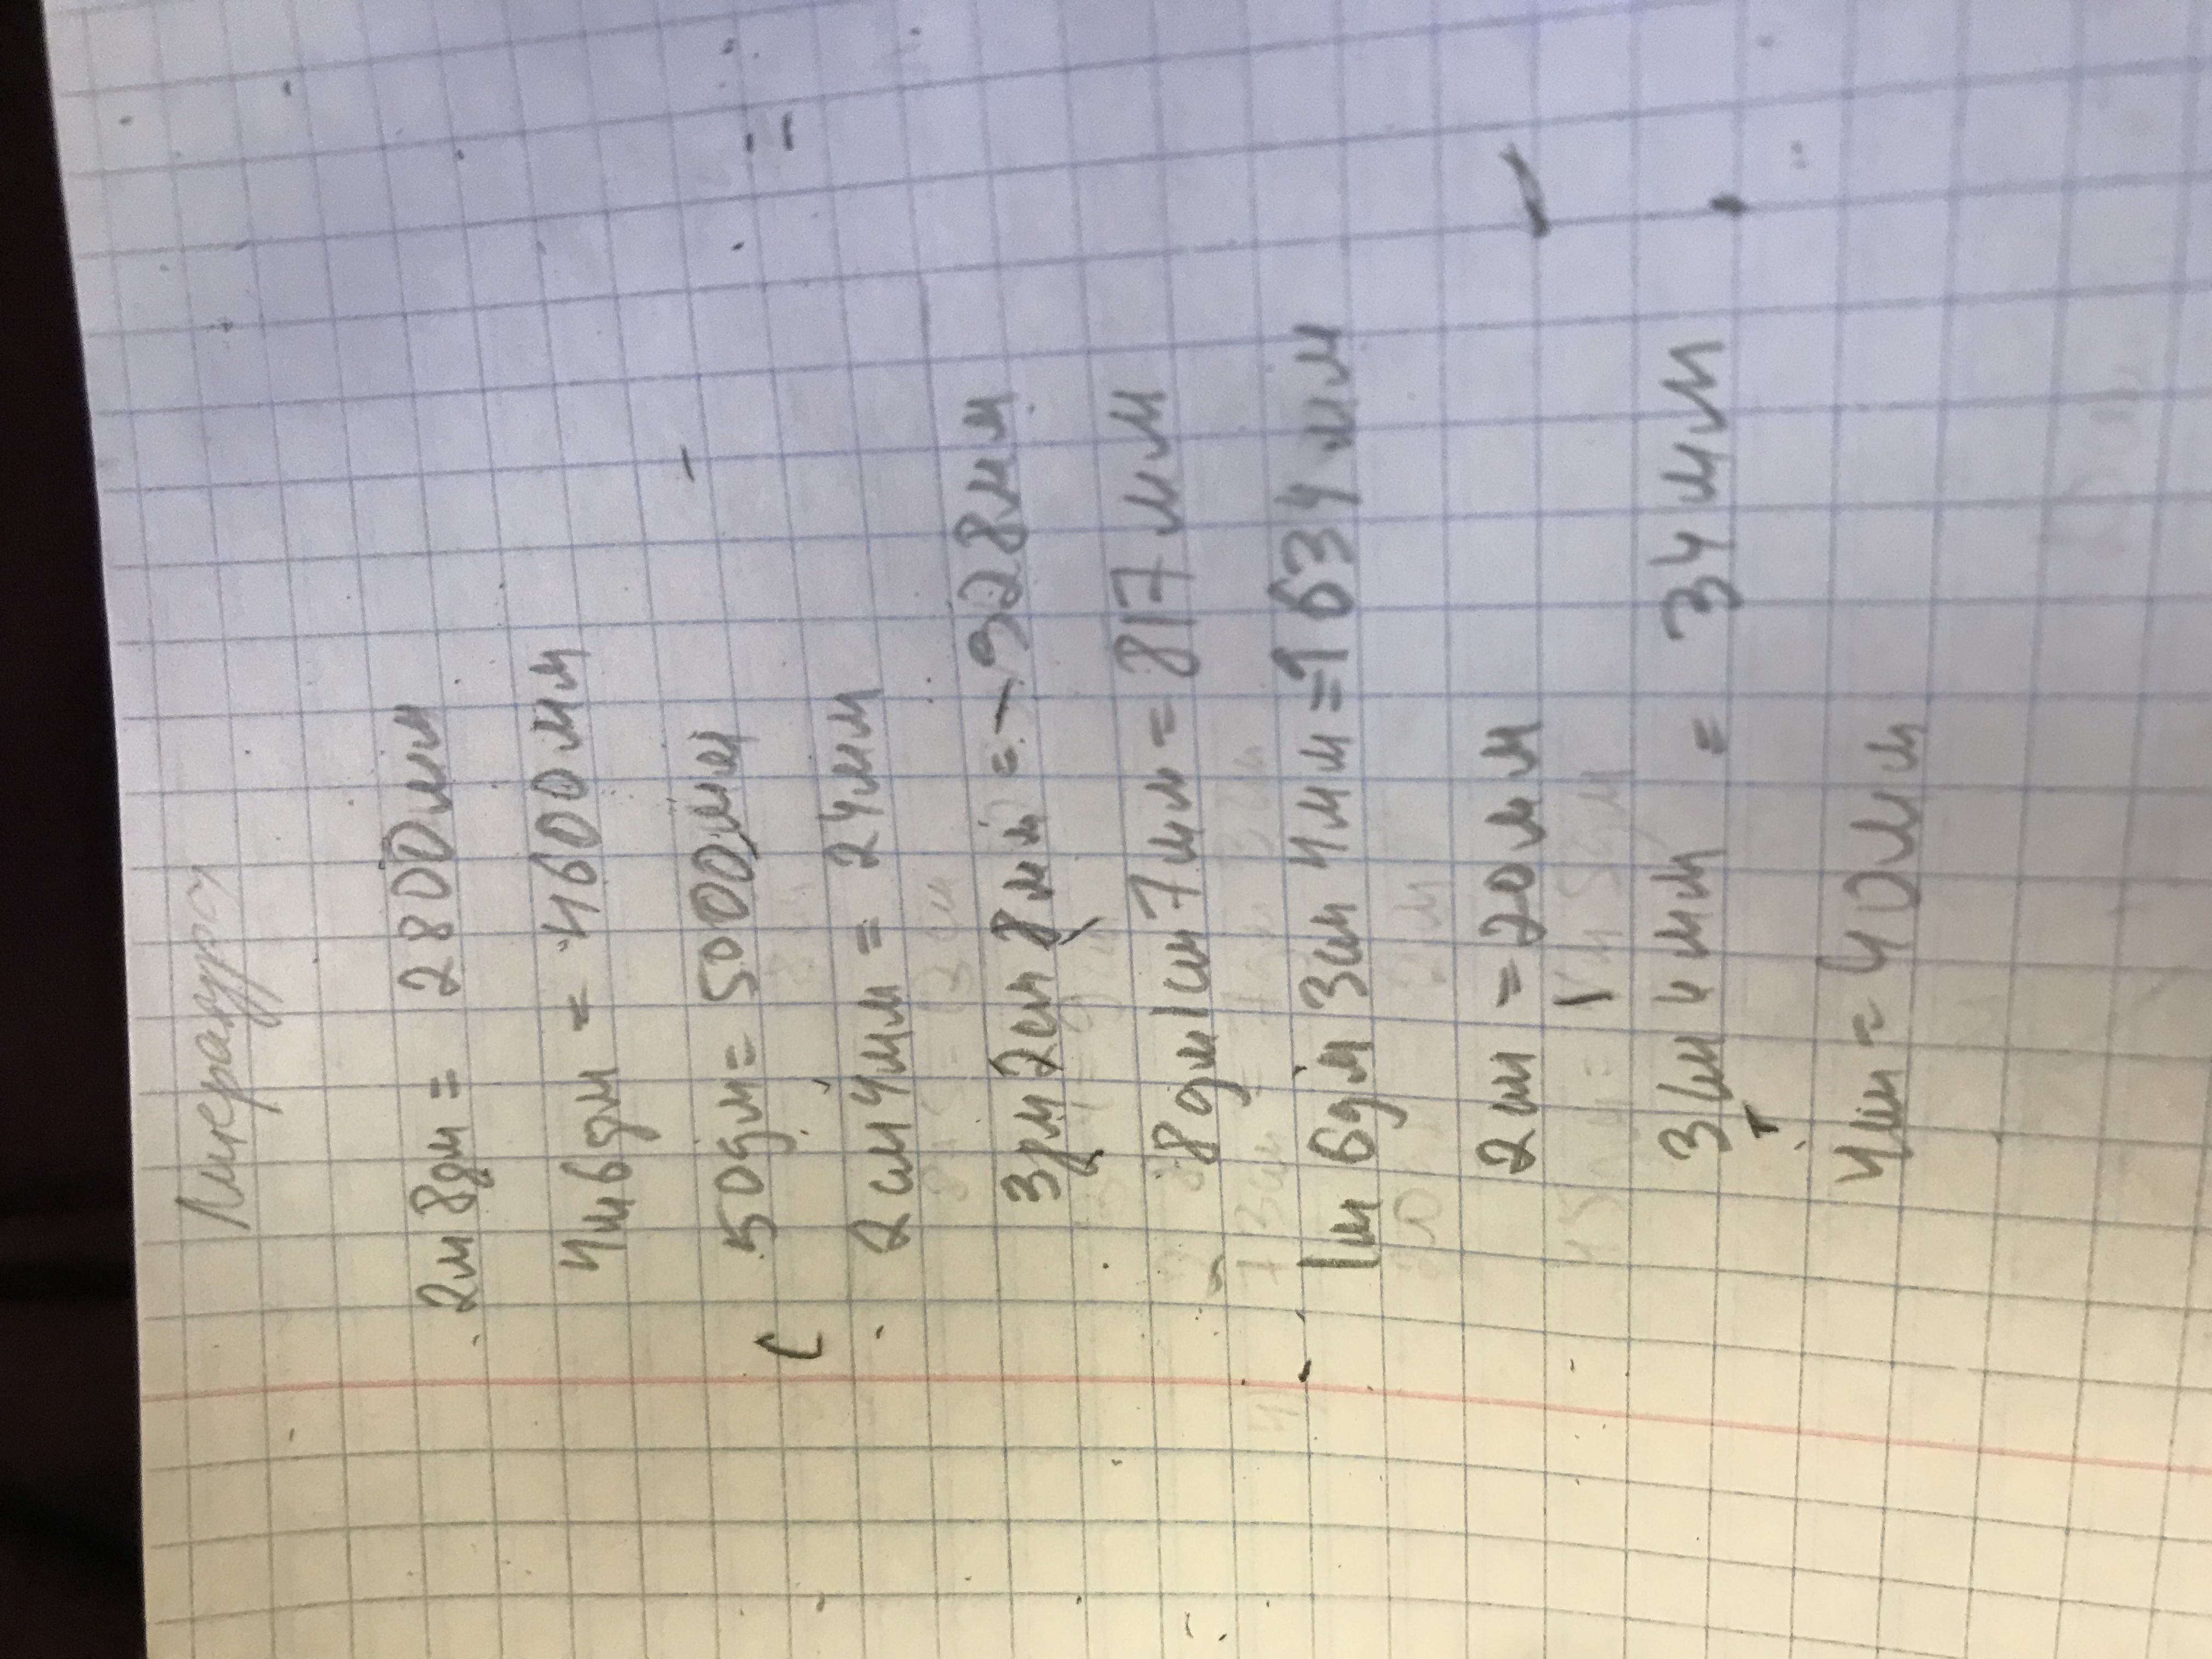 Литература
2м 8дм = 2800мм
4м 6дм = 4600мм
50дм = 5000мм
2см 4мм = 24мм
3дм 2см 8мм = 328мм
8дм 1см 7мм = 817мм
1м 6дм 3см 4мм = 1634мм
2см = 20мм
3см 4мм = 34мм
4см = 40мм